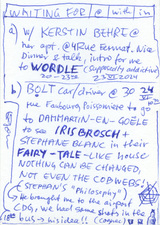 WAITING FOR @ with in
a) w/ KERSTIN BEHRE @
her apt. @ 4 Rue Fermat. Nice
Dinner & talk, intro for me
to WORDLE (supposedly addictive)
b) BOLT car/driver @ 30
Rue Faubourg Poissonnière to go
to DAMMARTIN-EN-GOËLE
to see IRIS BROSCH +
STEPHANE BLANC in their
FAIRY-TALE-LIKE house
NOTHING CAN BE CHANGED,
NOT EVEN THE COBWEBS!
(STEPHAN'S "Philosophy")
He brought me to the airport
CDG, we had some shots in the
bus → his idea!!